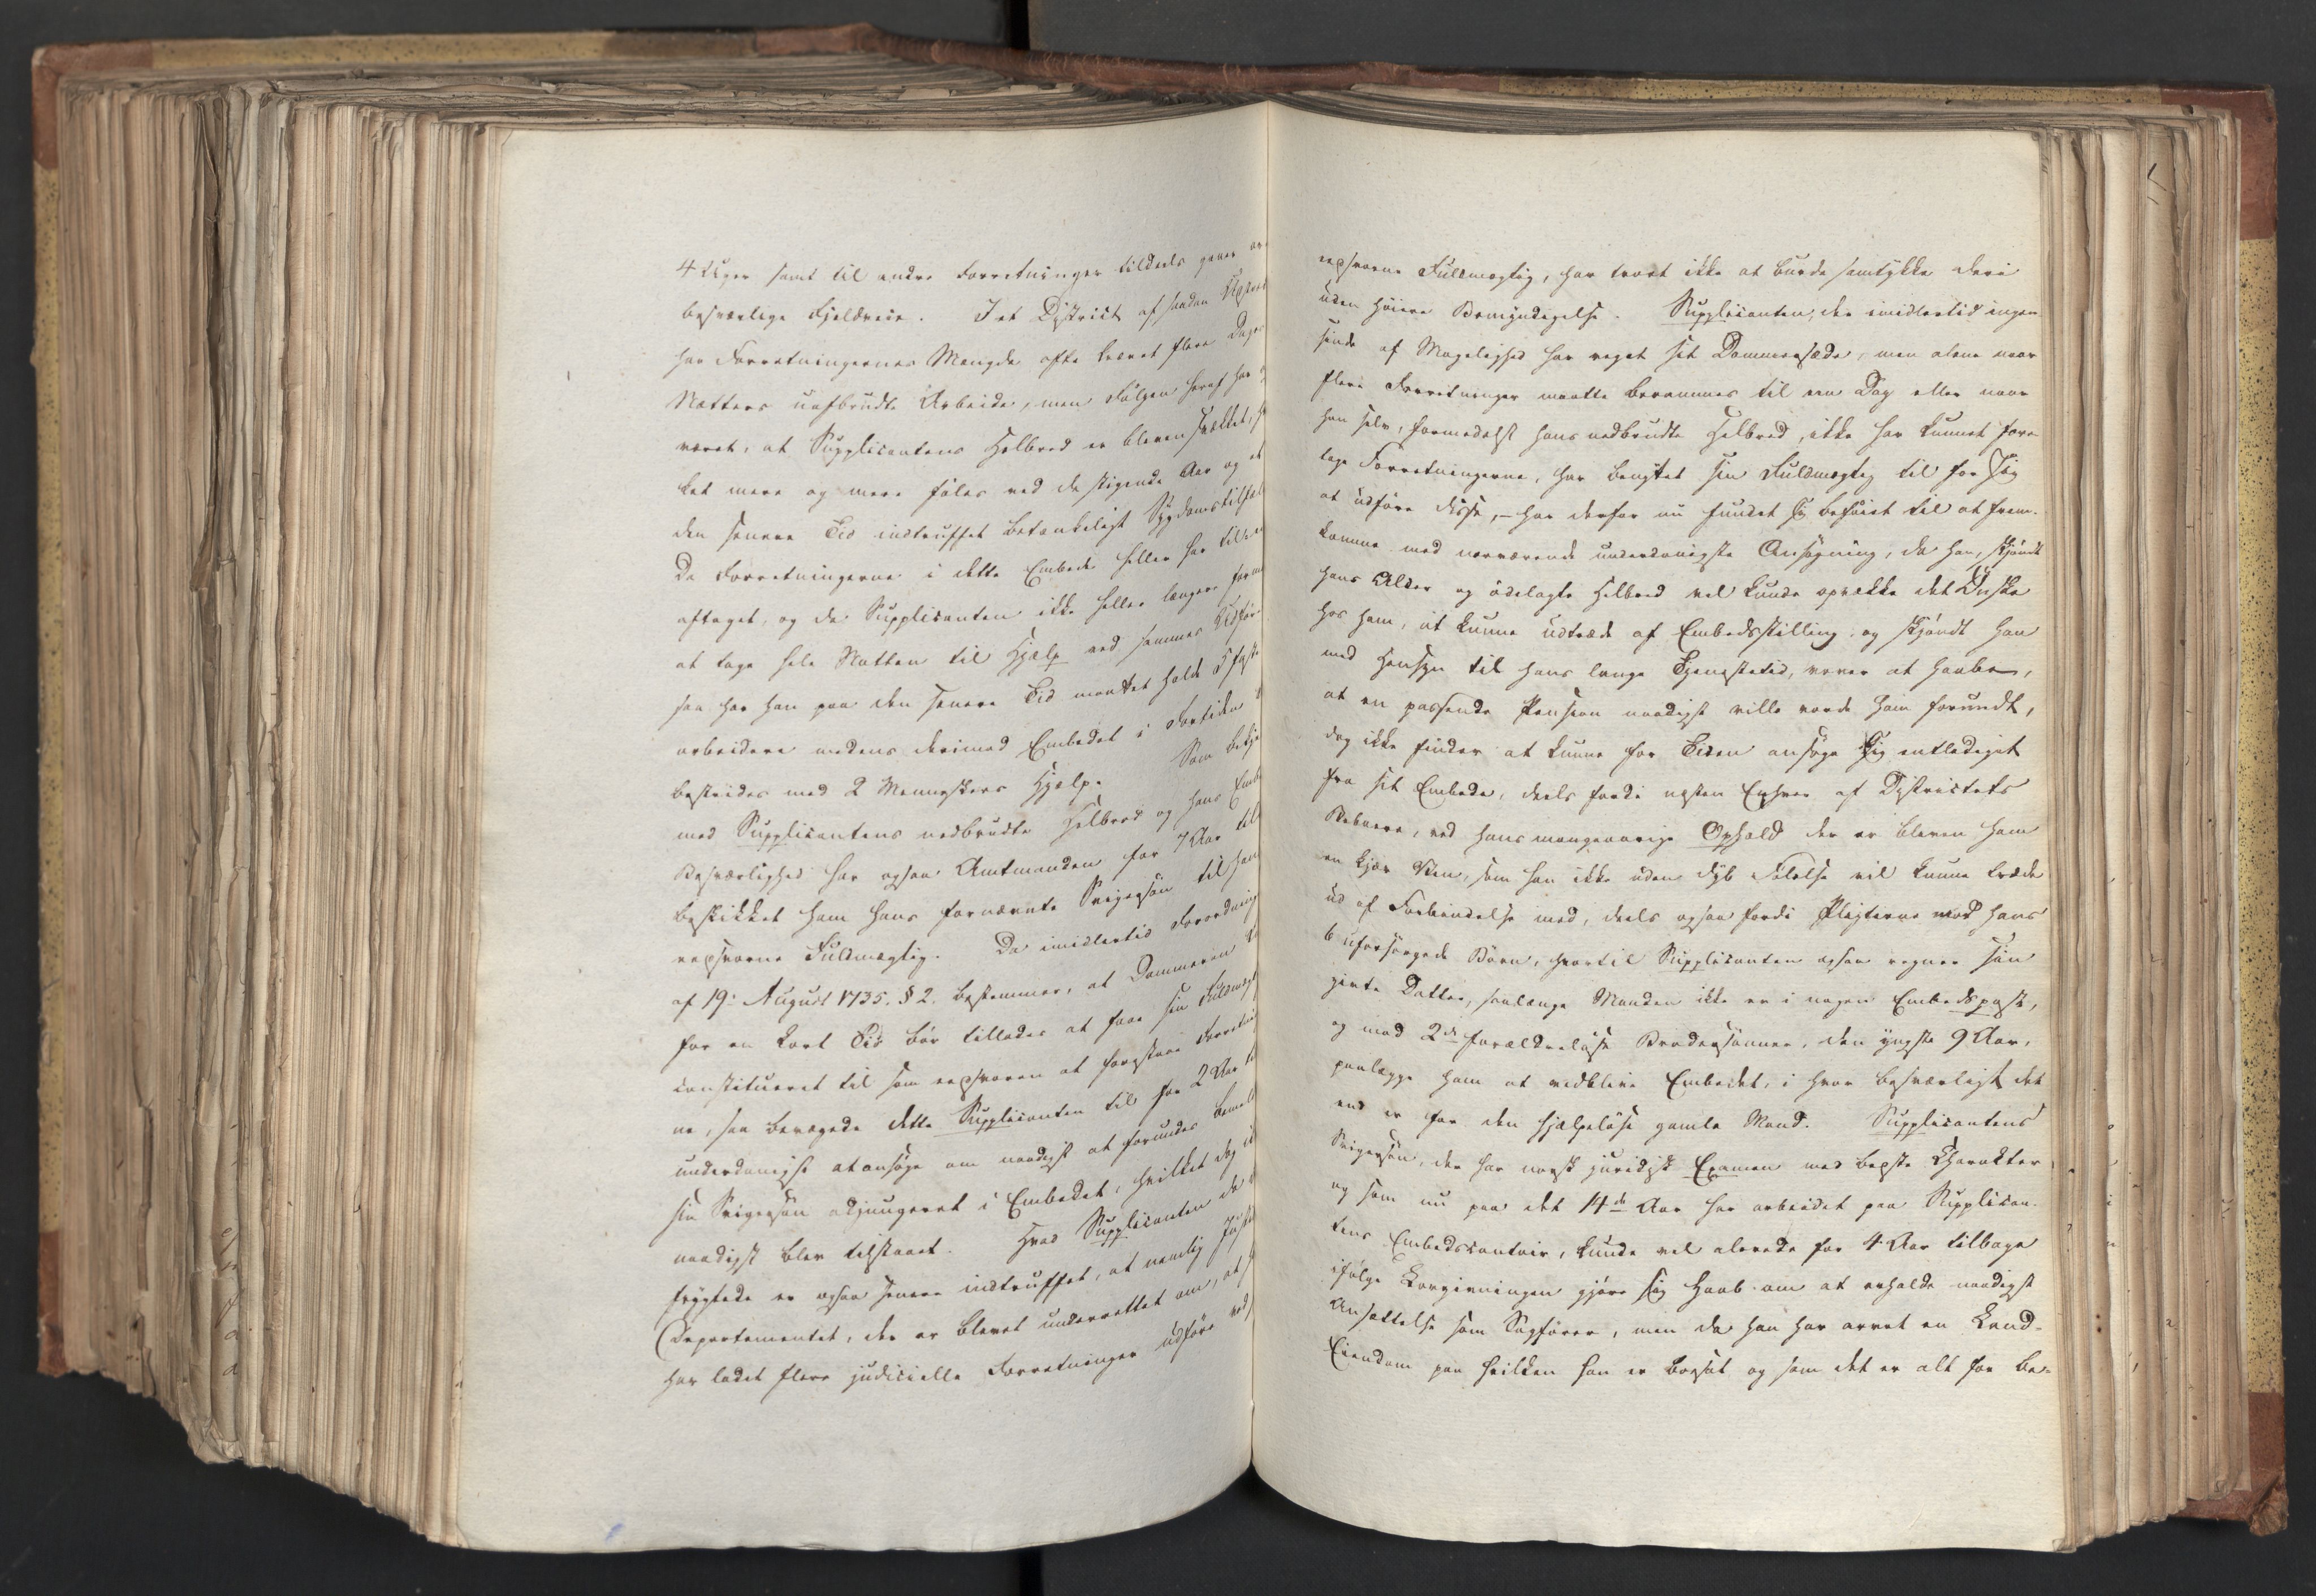 4 Uger samt til andre Forretninger tildeels gaaer
besværlige Fjeldveie. I et District af saadan
har Forretningernes Mængde ofte krævet flere Dages
Nætters uafbrudte Arbeide, men Følgen heraf har
været, at Supplicantens Helbred er bleven svækket,
ket mere og mere føles ved de stigende Aar og et
den senere Tid indtruffet betænkeligt Sygdomstilfæl
Da Forretningerne i dette Embede heller har
aftaget, og da Supplicanten ikke heller længere
at tage hele Natten til Hjælp ved sammes Udfør
saa har han paa den senere Tid maattet holde 5 faste
arbeidere medens derimod Embedet i Fortiden
bestredes med 2 Menneskers Hjælp. Som bekj
med Supplicantens nedbrudte Helbred og hans Emb
Besværlighed har ogsaa Amtmanden for 7 Aar
beskikket ham hans fornævnte Svigersøn til han
eedsvorne Fuldmægtig. Da imidlertid Forordning
af 19. August 1735. § 2. bestemmer, at Dommeren
for en kort Tid bør tillades at faae sin Fuldmægt
constitueret til som eedsvoren at forestaae Forretni
ne, saa bevægede dette Supplicanten til for 2 Aar
underdanigst at ansøge om naadigst at forundes
sin Svigersøn adjungeret i Embedet, hvilket dog
naadigst blev tilstaaet. Hvad Supplicanten da
frygtede er ogsaa senere indtruffet, at nemlig Just
Departementet, der er blevet underrettet om, at
har ladet flere judicielle Forretninger udføre ved
eedsvorne Fuldmægtig, har troet ikke at burde samtykke deri
uden høiere Bemyndigelse. Supplicanten, der imidlertid ingen-
sinde af Magelighed har veget sit Dommersæde, men alene naar
flere Forretninger maatte berammes til een Dag eller naar
han selv, formedelst hans nedbrudte Helbred, ikke har kunnet fore-
tage Forretningerne, har benyttet sin Fuldmægtig til for sig
at udføre disse, – har derfor nu fundet sig beføiet til at frem-
komme med nærværende underdanigste Ansøgning, da han, skjøndt
hans Alder og ødelagte Helbred vel kunde opvække det Ønske
hos ham, at kunne udtræde af Embedsstilling, og skjøndt han
med Hensyn til hans lange Tjenestetid, vover at haabe,
at en passende Pension naadigst ville vorde ham forundt,
dog ikke finder at kunne for Tiden ansøge sig entlediget
fra sit Embede, deels fordi næsten Enhver af Districtets
Beboere, ved hans mangeaarige Ophold der er bleven ham
en kjær Ven, som han ikke uden dyb Følelse vil kunne træde
ud af Forbindelse med, deels ogsaa fordi Pligterne mod hans
6 uforsørgede Børn, hvortil Supplicanten ogsaa regner sin
givte Datter, saalænge Manden ikke er i nogen Embedspost,
og mod 2de forældreløse Brodersønner, den yngste 9 Aar,
paalægge ham at vedblive Embedet, i hvor besværligt det
end er for den hjælpeløse gamle Mand. Supplicantens
Svigersøn, der har norsk juridisk Examen med bedste Charakter
og som nu paa det 14de Aar har arbeidet paa Supplican-
tens Embedscontoir, kunde vel allerede for 4 Aar tilbage
ifølge Lovgivningen gjøre sig Haab om at erholde naadigst
Ansættelse som Sagfører, men da han har arvet en Land-
Eiendom paa hvilken han er bosat og som det er alt for be-